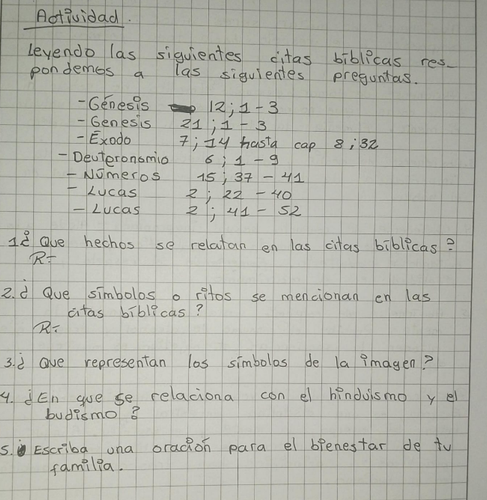 Actividad.
Leyendo las siguientes citas bíblicas res-
pondemos a las siguientes preguntas.
- Génesis 12; 1-3
- Genesis 21; 1-3
- Exodo 7; 14 hasta cap 8; 32
- Deuteronomio 6; 1-9
- Números 15; 37-41
- Lucas 2; 22-40
- Lucas 2; 41-52
1¿ Que hechos se relatan en las citas bíblicas?
R=
2.¿ Que símbolos o ritos se mencionan en las
citas bíblicas?
R=
3.¿ Que representan los símbolos de la imagen?
4. ¿En que se relaciona con el hinduismo y el
budismo?
5. Escriba una oración para el bienestar de tu
familia.